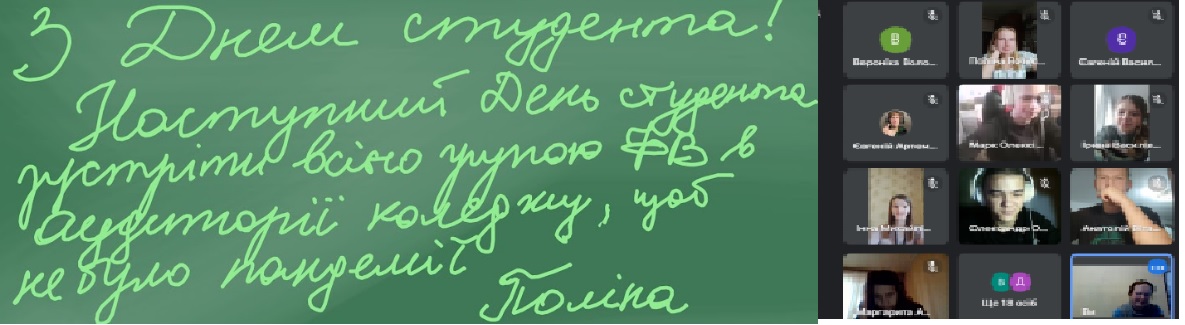 З Днем студента!
Наступний День студента
зустріти всією групою ФВ в
аудиторії коледжу, щоб
не було пандемії
Поліна
Вероніка Воло...
Євгеній Васил...
Євгеній Артем...
Марк Олексі...
Ірина Василів...
Інна Михайл...
Олександр О...
Анатолій
Маргарита А...
Ще 18 осіб
Ви
В
Д